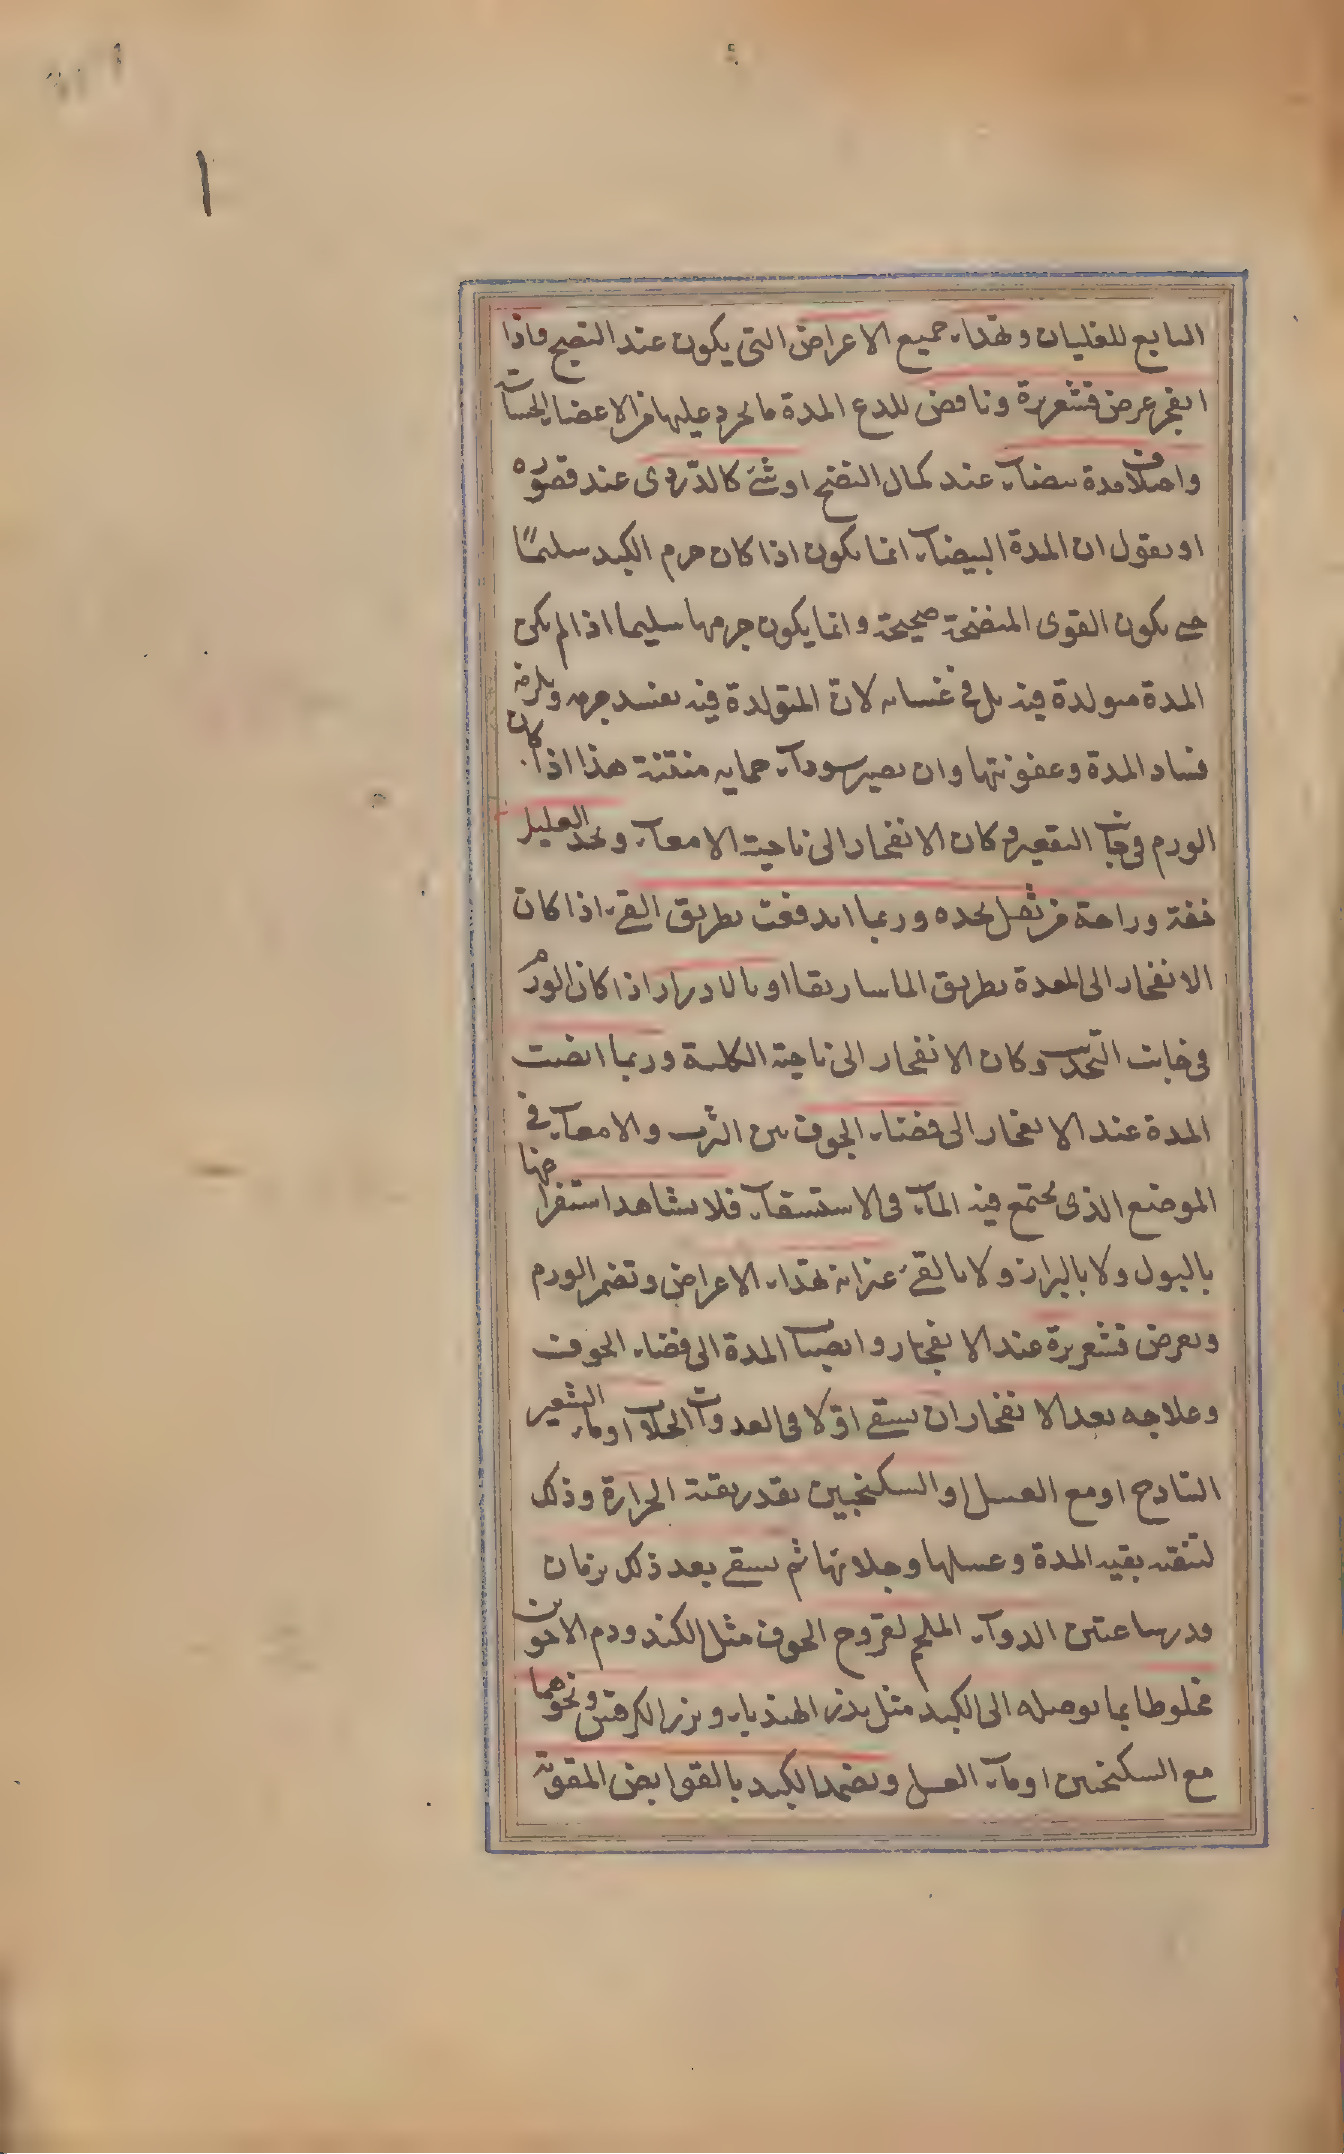 التابع للغليان وتهداء جميع الاعراض التى يكون عند النضج واذا
انفجر عرض قشعريرة ونافض للدع المدة ما تجرى عليها من الاعضاء الحساسة
واختلاف مدة بيضاء عند كمال النضج او شئ كالدردى عند قصوره
او نقول ان المدة البيضاء انما يكون اذا كان جرم الكبد سليما
حتى يكون القوى المنضجة صحيحة وانما يكون جرمها سليما اذا لم يكن
المدة متولدة فيه بل فى غشائه لان المتولدة فيه يفسد جرمه ويلزمه
فساد المدة وعفونتها وان يصير سوداء حمايه منتنة هذا اذا كان
الورم فى جانب التقعير وكان الانفجار الى ناحية الامعاء ويجد العليل
خفة وراحة من ثقل يجده وربما اندفعت بطريق القئ اذا كان
الانفجار الى المعدة بطريق الماساريقا او بالادرار اذا كان الورم
فى جانب التحديب وكان الانفجار الى ناحية الكلية وربما انصبت
المدة عند الانفجار الى فضاء الجوف بين الثرب والامعاء فى
الموضع الذى يجتمع فيه الماء فى الاستسقاء فلا يشاهد استفراغها
بالبول ولا بالبراز ولا بالقئ غير انه تهداء الاعراض وتضمر الورم
ويعرض قشعريرة عند الانفجار وانصباب المدة الى فضاء الجوف
وعلاجه بعد الانفجار ان يسقى اولا فى الغدوات الجلاب او ماء الشعير
الساذج او مع العسل او السكنجبين بقدر بقية الحرارة وذلك
لتنقية بقيه المدة وغسلها وجلائها ثم يسقى بعد ذلك بزمان
قدر ساعتين الدواء الملحم لقروح الجوف مثل الكندر ودم الاخوين
مخلوطا بما يوصله الى الكبد مثل بذر الهندباء وبزر الكرفس ونحوهما
مع السكنجبين او ماء العسل ويضمد الكبد بالقوابض المقوية